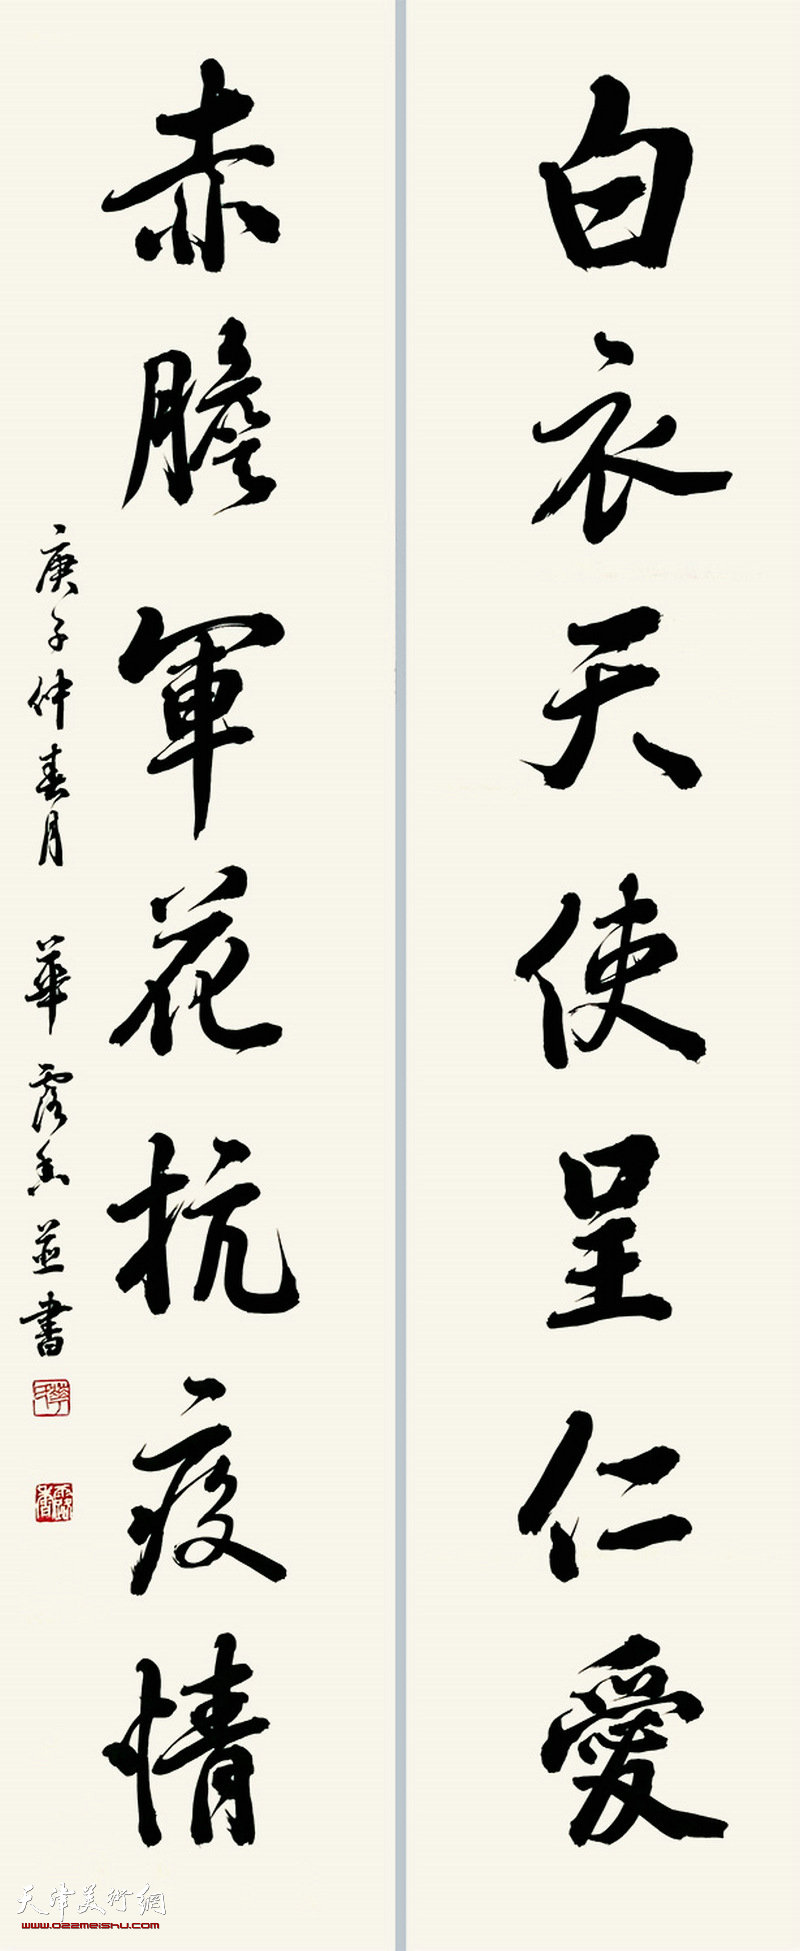 白衣天使呈仁愛
赤膽軍花抗疫情
庚子仲春月 華露香並書
天津美術網
www.022meishu.com